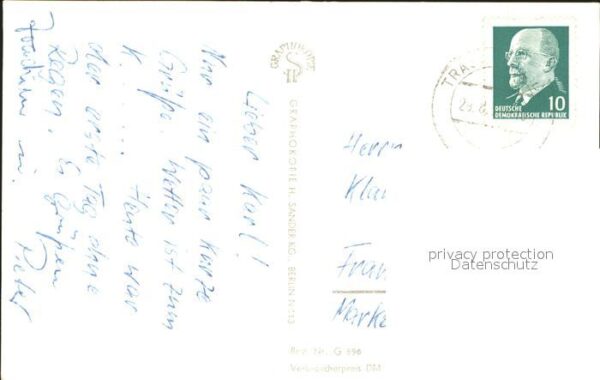 Lieber Karl!
Nur ein paar kurze
Grüße. Wetter ist zum
K...... Heute war
der erste Tag ohne
Regen. Es grüßen
Joachim u. Dieter
GRAPHOKOPIE
GRAPHOKOPIE H. SANDER KG. BERLIN N 113
TRA
10
DEUTSCHE
DEMOKRATISCHE REPUBLIK
Herrn
Klau
Fran
Marke
privacy protection
Datenschutz
Best. Nr. G 696
Verbraucherpreis DM